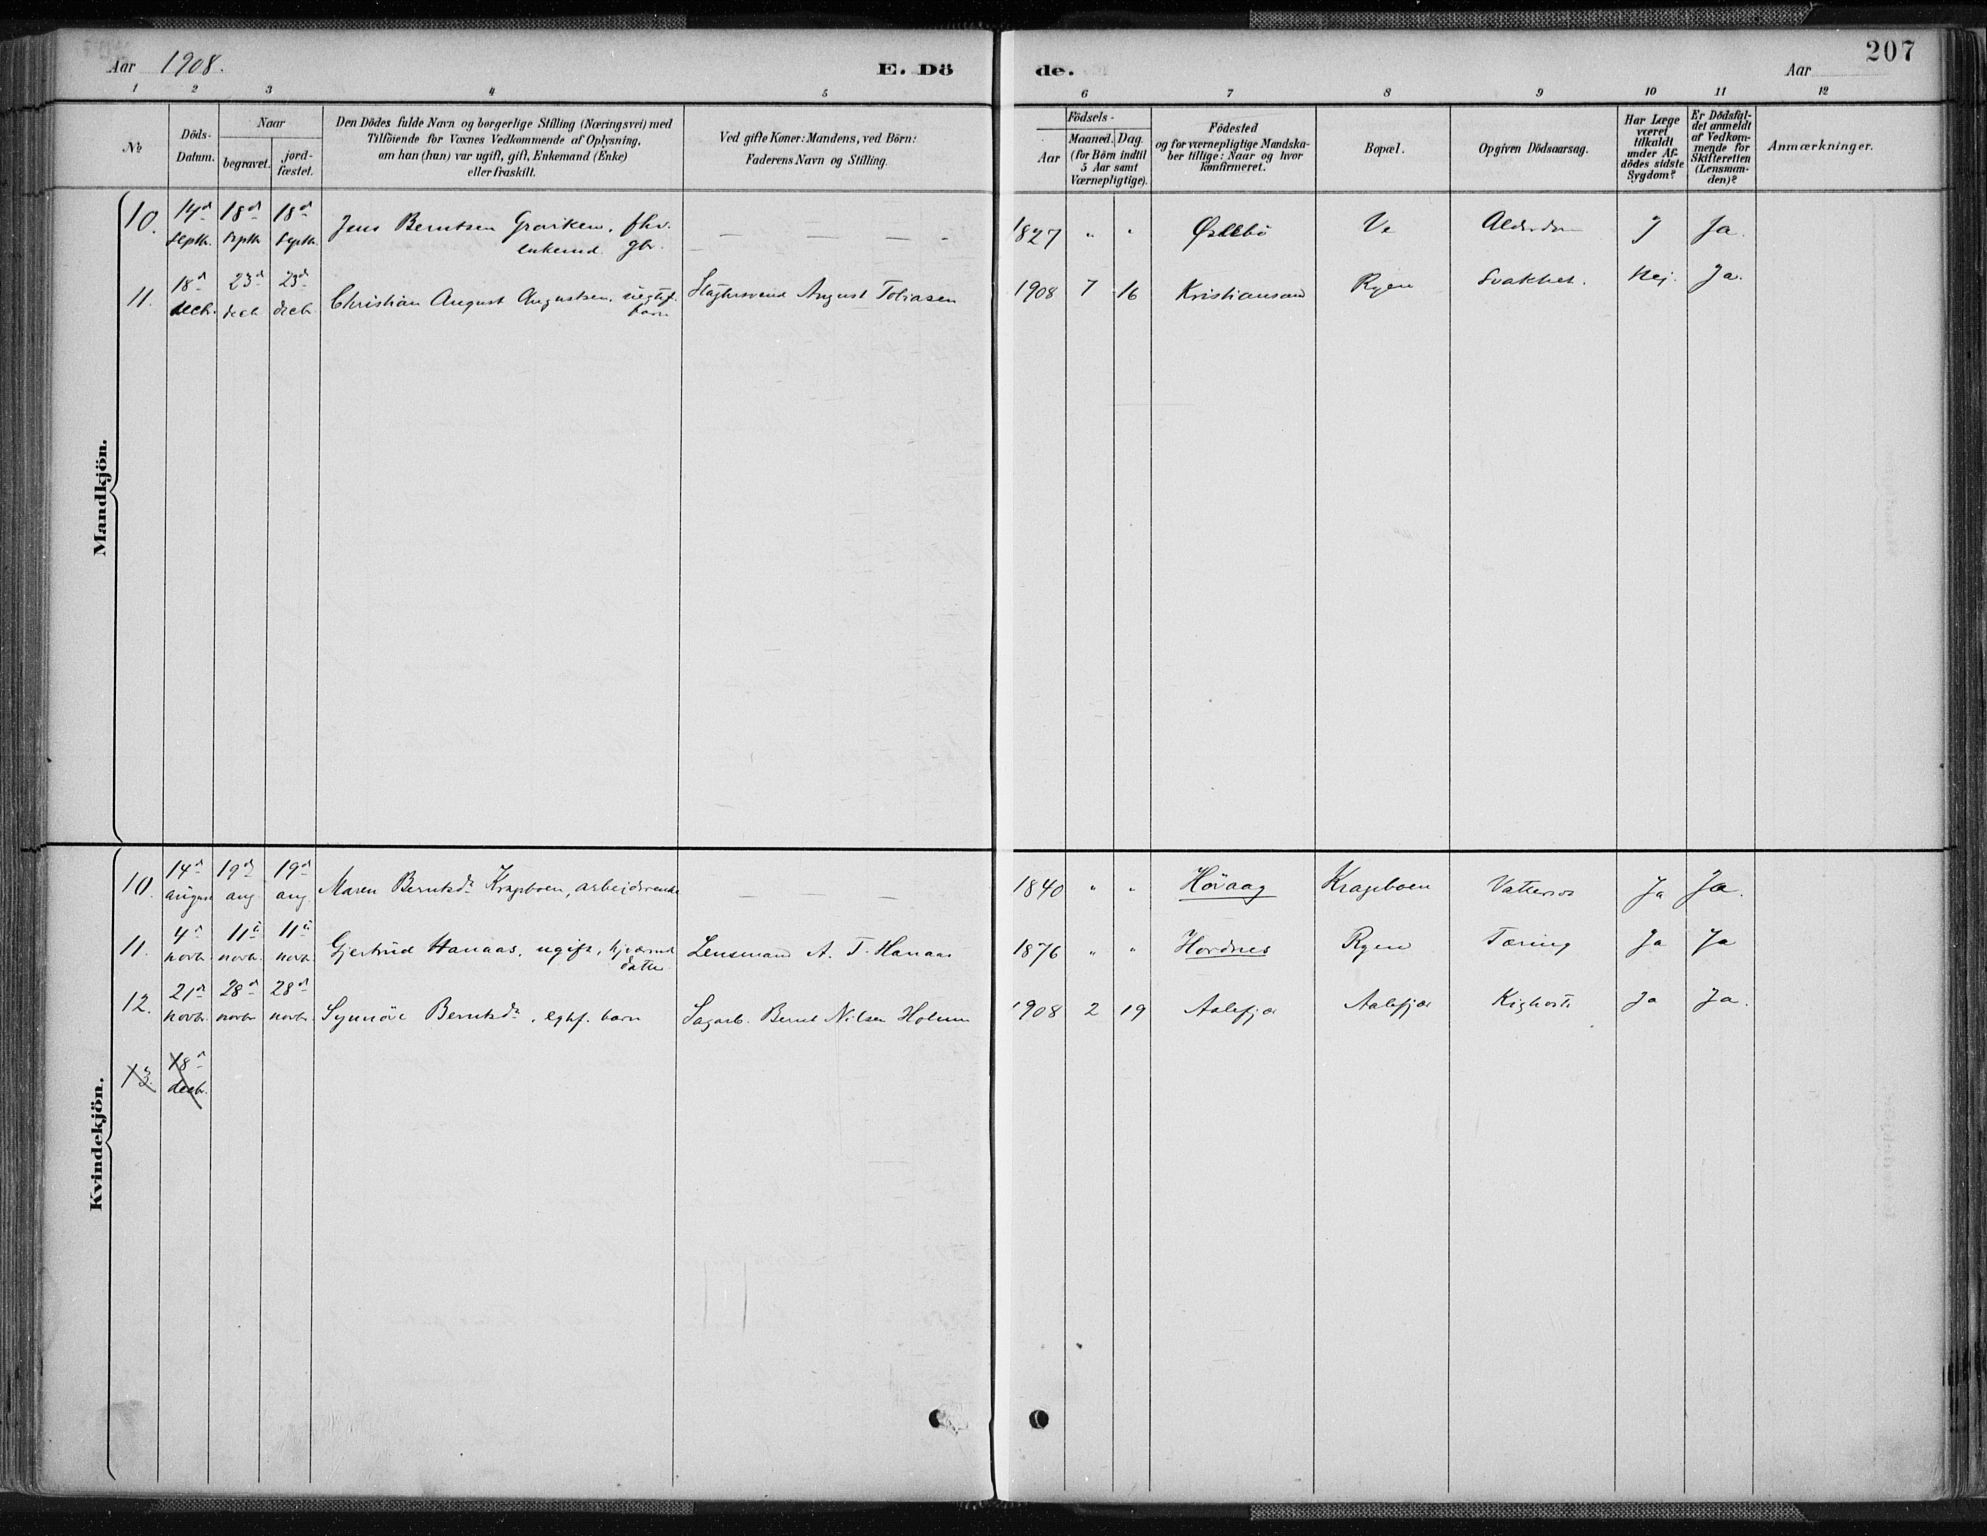 Aar 1908.
E. Dö
de.
Aar
207
1 2 3 4 5 6 7 8 9 10 11 12
№
Döds-Datum.
Naar
begravet.
jord-fæstet.
Den Dödes fulde Navn og borgerlige Stilling (Næringsvei) med
Tilföiende for Voxnes Vedkommende af Oplysning,
om han (hun) var ugift, gift, Enkemand (Enke)
eller fraskilt.
Ved gifte Koner: Mandens, ved Börn:
Faderens Navn og Stilling.
Födsels-
Aar
Maaned. Dag.
(for Börn indtil
5 Aar samt
Værnepligtige).
Födested
og for værnepligtige Mandska-
ber tillige: Naar og hvor
konfirmeret.
Bopæl.
Opgiven Dödsaarsag.
Har Læge
været
tilkaldt
under Af-
dödes sidste
Sygdom?
Er Dödsfal-
det anmeldt
af Vedkom-
mende for
Skifteretten
(Lensman-
den)?
Anmærkninger.
Mandkjön.
10. 14d septb. 18d septb. 18d septb. Jens Berntsen fhv. gbr. enkemd. — — — — 1827 " " Ve Ja.
11. 18d decb. 23d decb. 23d decb. Christian August Augustsen, uegtef. barn August Tobiasen 1908 7 16 Kristiansand Ryen Svakhet. Nej. Ja.
Kvindekjön.
10. 14d august 19d aug 19d aug. Maren Berntsdr Kragsboen, arbeiderenke — — 1840 " " Høvaag Kragsboen Vattersot Ja Ja.
11. 4d novb. 11te novb. 11te novb. Gjertrud Hanaas, ugift, datter Lensmand A. T. Hanaas 1876 " " Hordnes Ryen Tæring Ja Ja
12. 21d novbr. 28d novbr 28d novbr. Synnöve Berntsdr, egtef. barn Sagarb. Bernt Nilsen Holum 1908 2 19 Aalefjær Aalefjær Kighoste Ja Ja.
13. 18d decbr.